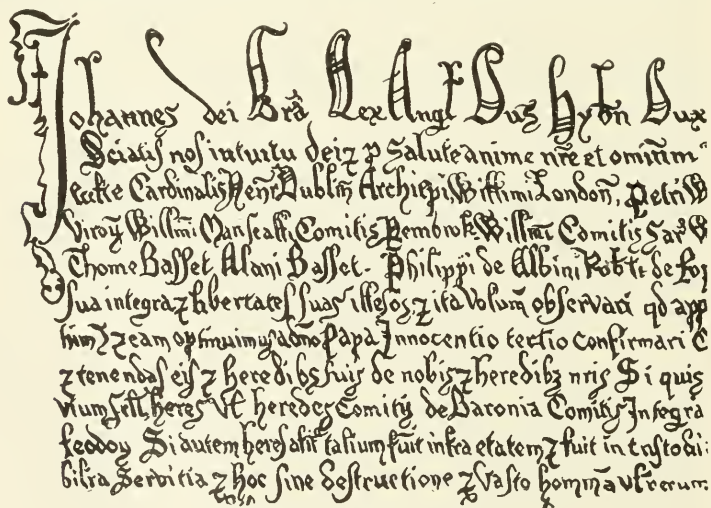 Johannes dei Grã Rex Angł Dñs Hybñ Dux
Sciatis nos intuitu dei ⁊ p salute anime nr̃e et omnium
eccłe Cardinalis Henr̃ Dublin̄ Archiep̃i Willimi London̄, Petri W
viroꝝ Willmi Marscalli Comitis Pembrok Willmi Comitis Sar̃ W
Thome Basset Alani Basset. Philippi de Albini Robti de Ros
sua integra ⁊ libertates suas illesas, ⁊ ita volum̃ observari qd app
him ⁊ ⁊ eam optinuimus a dño Papa Innocentio tertio confirmari C
⁊ tenendas eis ⁊ heredibz suis de nobis ⁊ heredibz nris Si quis
vium scił heres vł heredes Comitis de Baronia Comitis Integra
feodoꝝ Si autem heres alic̃ talium fuit infra etatem ⁊ fuit in custodi
bilia Servitia ⁊ hoc sine destructione ⁊ vasto hominũ vł rerum